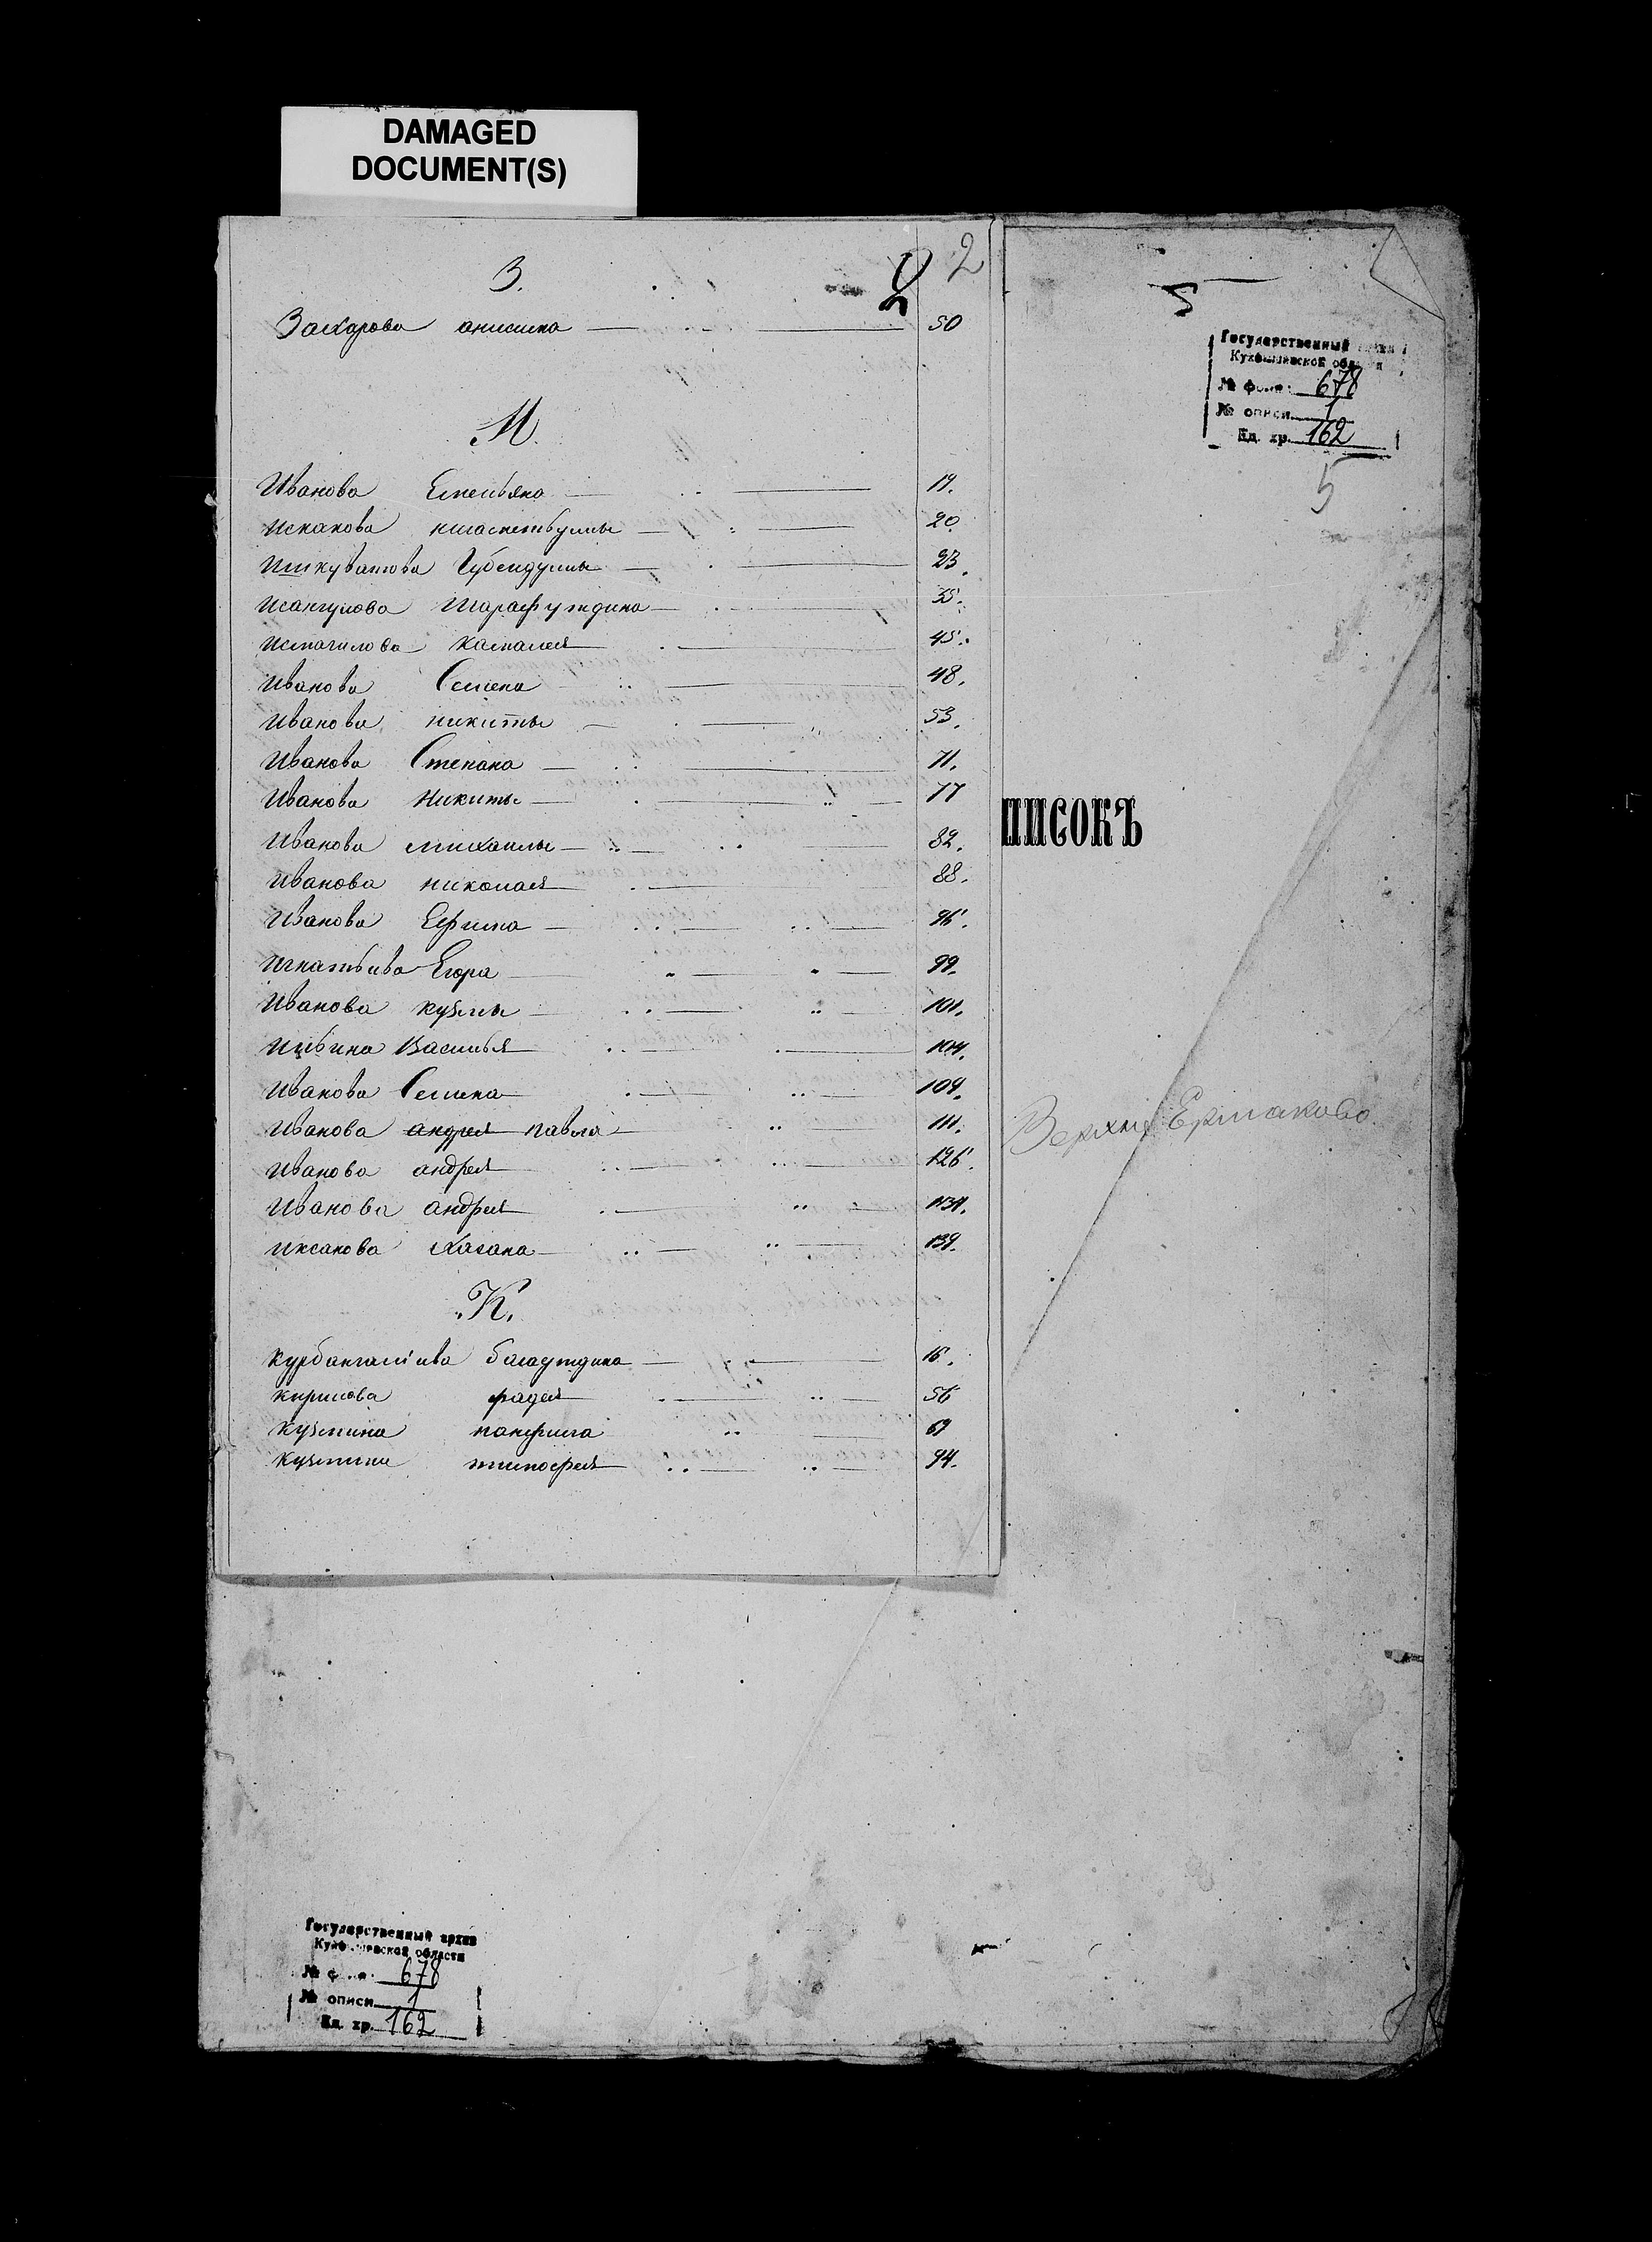 DAMAGED
DOCUMENT(S)
2
З.
Захарова анисима 50
И.
Иванова Емельяна 19.
Искакова 20
Ишкуватова Губейдуллы 23.
Исангулова Шарафутдина 35.
Исмагилова Камалея 45.
Иванова Семена 48.
Иванова никиты 53.
Иванова Степана 71.
Иванова Никиты 77
Иванова михаилы 82.
Иванова николая 88.
Иванова Ефима 96.
Игнатьива Егора 99.
Иванова кузмы 101.
Ильина Василья 104.
Иванова Семена 109.
Иванова андрея павла 111.
Иванова андрея 126.
Иванова андрея 131.
Иксанова Хасана 139.
К.
курбангалиива багаутдина 16.
кирилова фадея 56
кузмина панфила 69
кузмина тимофея 94.
5
Государственный архив
Куйбышевской области
№ фонда 678
№ описи 1
Ед. хр. 162
5
ПИСОКЪ
Верхнѣ Ермаково
Государственный архив
Куйбышевской области
№ фонда 678
№ описи 1
Ед. хр. 162